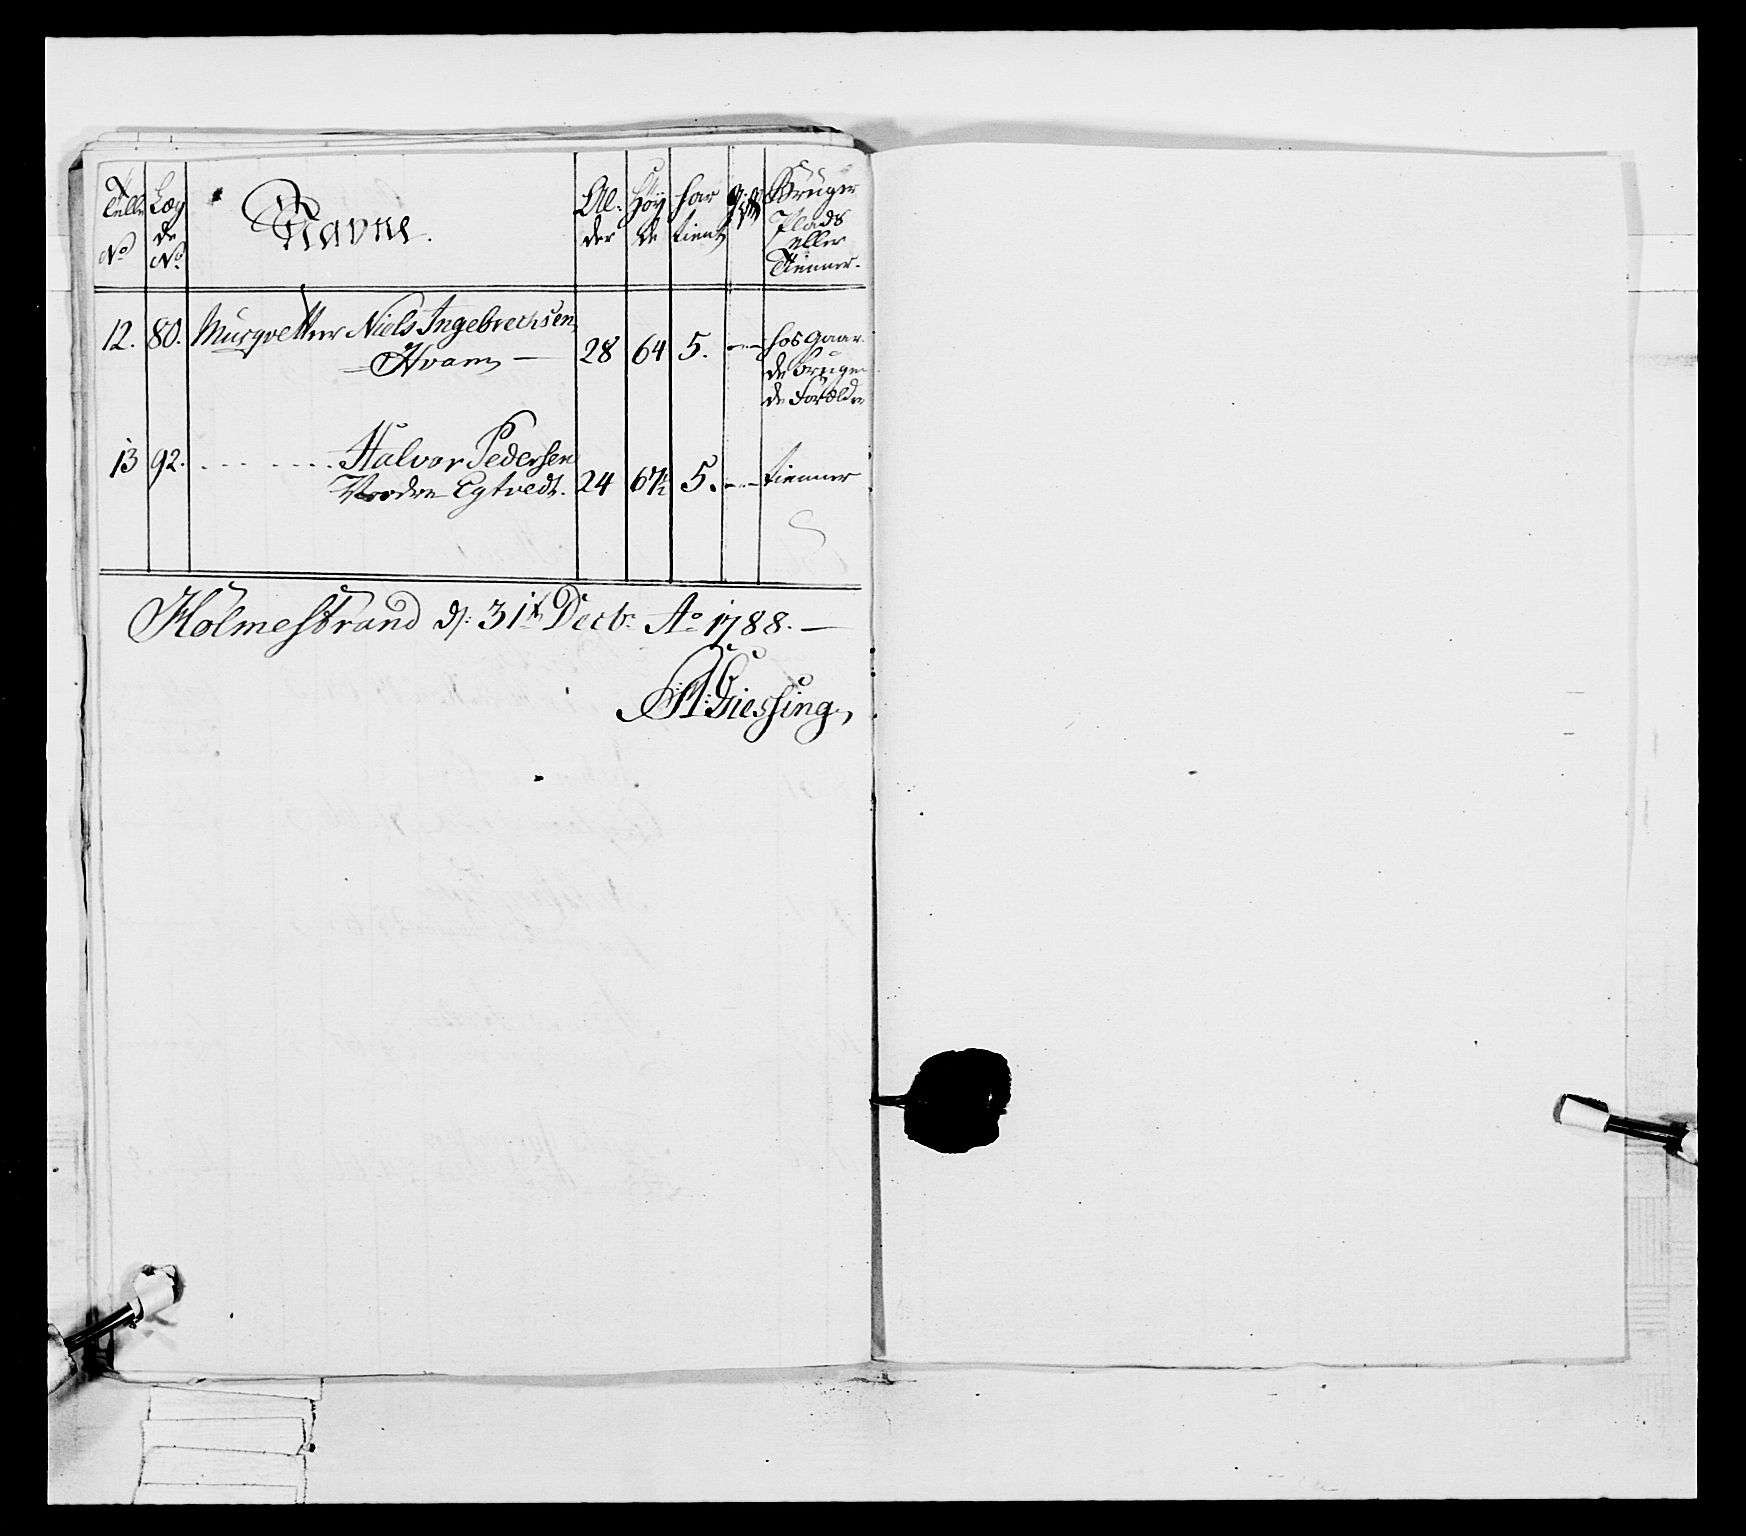 Telle No
Læg de No
Navne.
Al: der
Høy de
har tient
gift
Bruger Plads eller Tienner.
12. 80. Musqvetteer Niels Ingebrechsen Hvam — 28 64 5. — hos gaar de bruge de Forældre
13 92. . . . . . . . Halvor Pedersen Egtvedt. 24 67½ 5. — tienner
Holmestrand d: 31te Decbr Ao 1788. —
Giessing